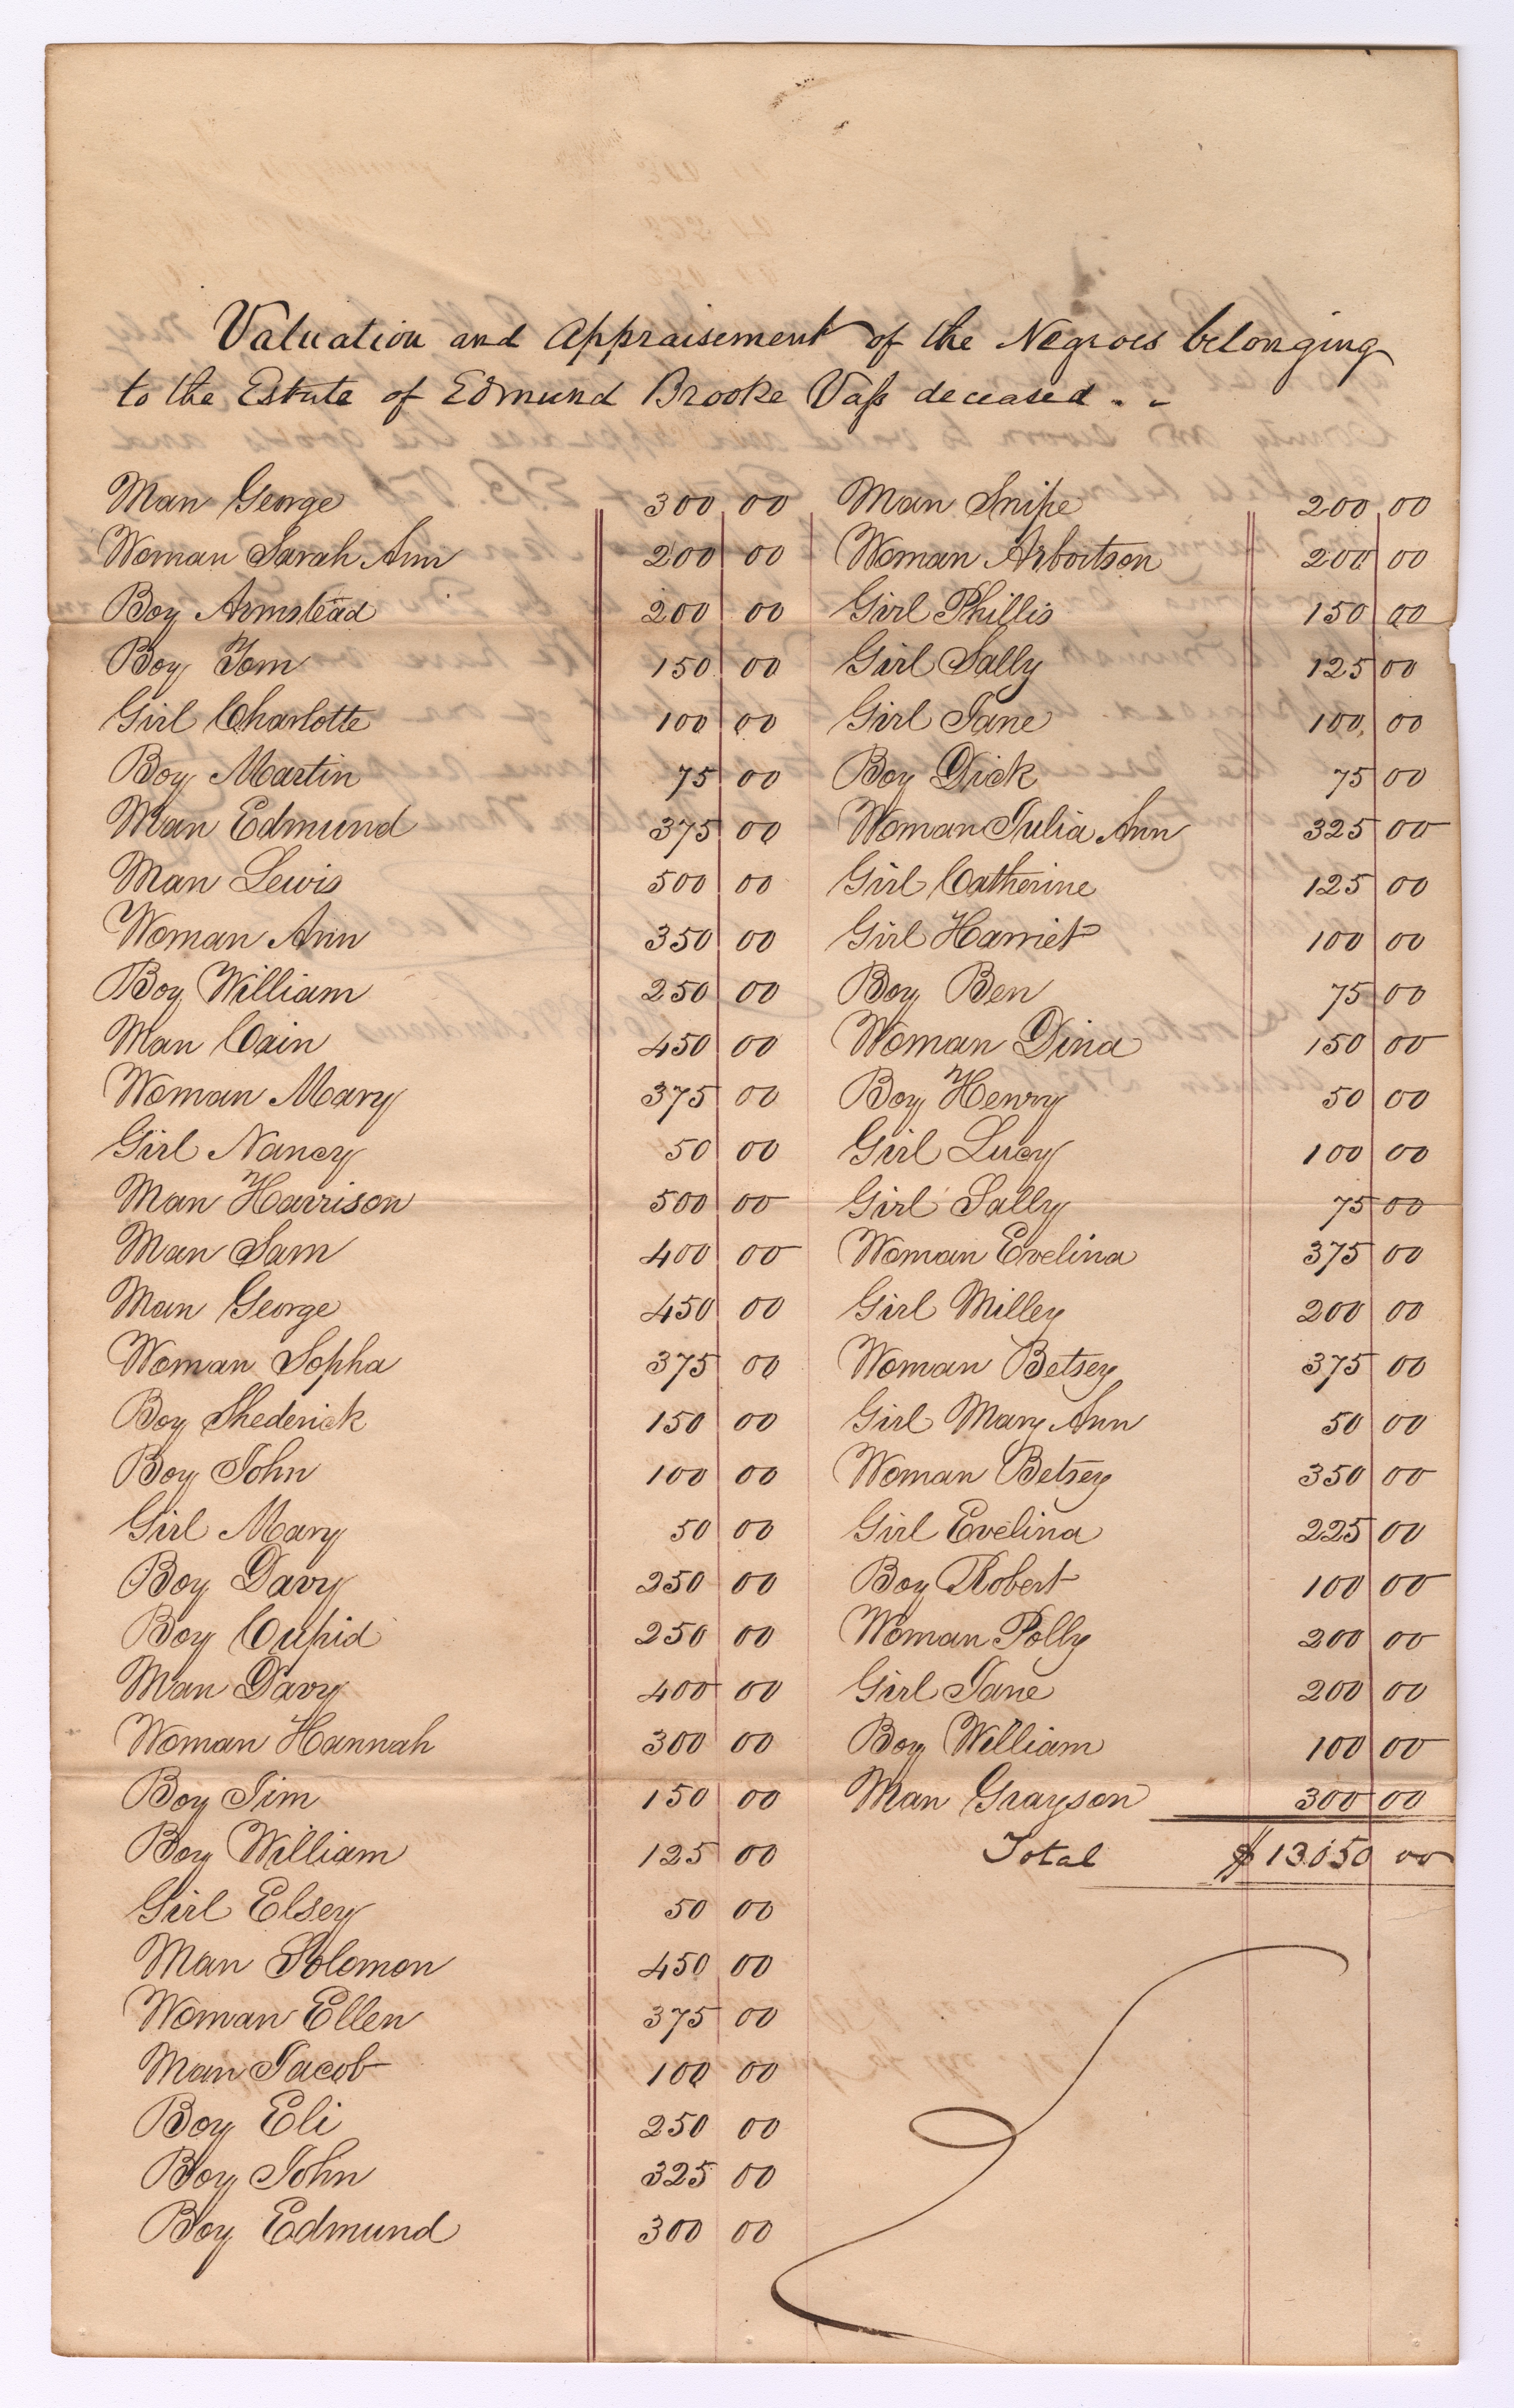 Valuation and Appraisement of the Negroes belonging
to the Estate of Edmund Brooke Vaſs deceased . -
Man George 300 00
Woman Sarah Ann 200 00
Boy Armstead 200 00
Boy Tom 150 00
Girl Charlotte 100 00
Boy Martin 75 00
Man Edmund 375 00
Man Lewis 500 00
Woman Ann 350 00
Boy William 250 00
Man Cain 450 00
Woman Mary 375 00
Girl Nancy 50 00
Man Harrison 500 00
Man Sam 400 00
Man George 450 00
Woman Sopha 375 00
Boy Shederick 150 00
Boy John 100 00
Girl Mary 50 00
Boy Davy 250 00
Boy Cupid 250 00
Man Davy 400 00
Woman Hannah 300 00
Boy Jim 150 00
Boy William 125 00
Girl Elsey 50 00
Man Solomon 450 00
Woman Ellen 375 00
Man Jacob 100 00
Boy Eli 250 00
Boy John 325 00
Boy Edmund 300 00
Man Snipe 200 00
Woman Arbortson 200 00
Girl Phillis 150 00
Girl Sally 125 00
Girl Jane 100 00
Boy Dick 75 00
Woman Julia Ann 325 00
Girl Catherine 125 00
Girl Harriet 100 00
Boy Ben 75 00
Woman Dina 150 00
Boy Henry 50 00
Girl Lucy 100 00
Girl Sally 75 00
Woman Evelina 375 00
Girl Milley 200 00
Woman Betsey 375 00
Girl Mary Ann 50 00
Woman Betsey 350 00
Girl Evelina 225 00
Boy Robert 100 00
Woman Polly 200 00
Girl Jane 200 00
Boy William 100 00
Man Grayson 300 00
Total $13.050 00